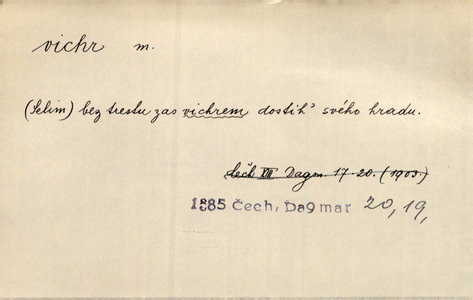 vichr m.
(Selim) bez trestu zas vichrem dostih' svého hradu.
Čech VIII Dagm. 17-20. (1903)
1885 Čech, Dagmar 20, 19,